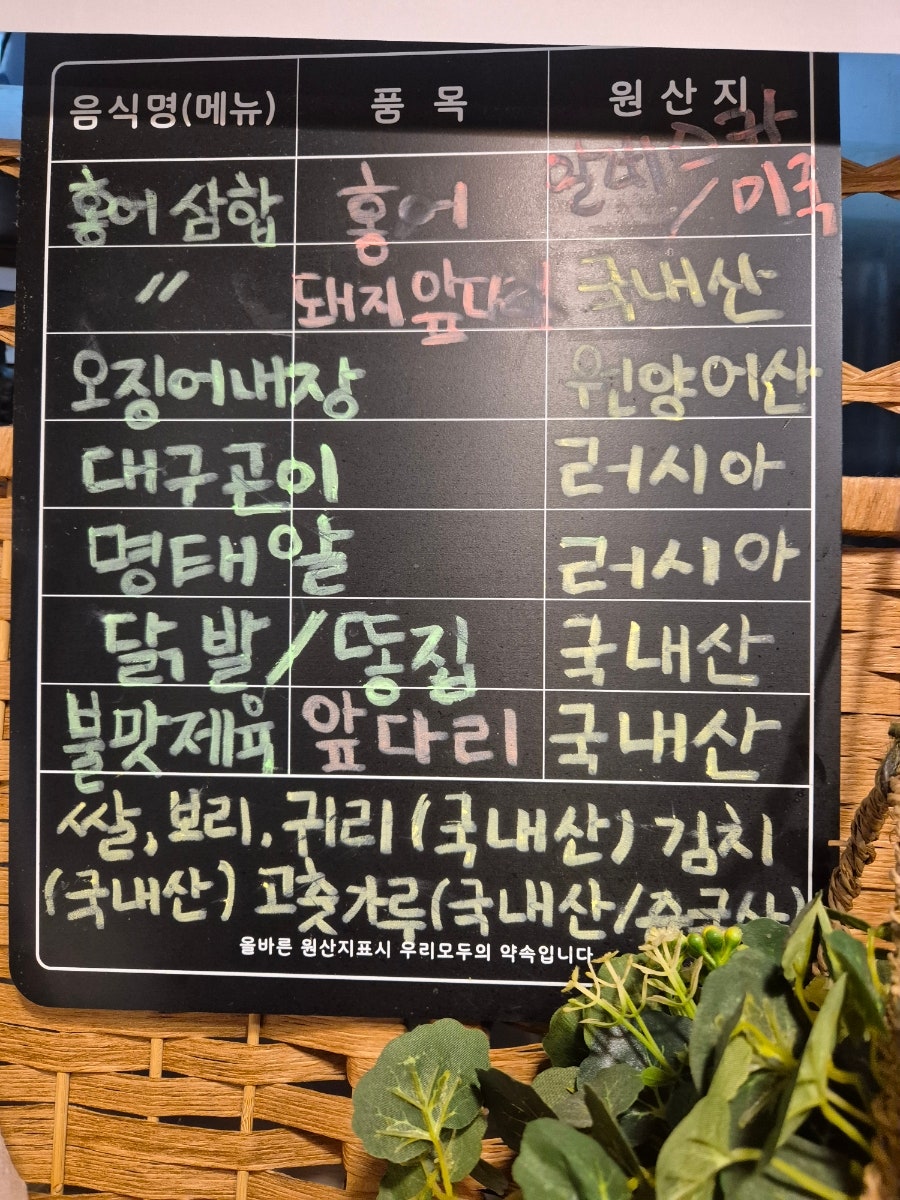 음식명(메뉴) 품 목 원 산 지
홍어 삼합 홍어 알래스카/미국
〃 돼지 앞다리 국내산
오징어내장 원양어산
대구곤이 러시아
명태알 러시아
닭발/똥집 국내산
불맛제육 앞다리 국내산
쌀, 보리, 귀리 (국내산) 김치
(국내산) 고춧가루(국내산/중국산)
올바른 원산지표시 우리모두의 약속입니다